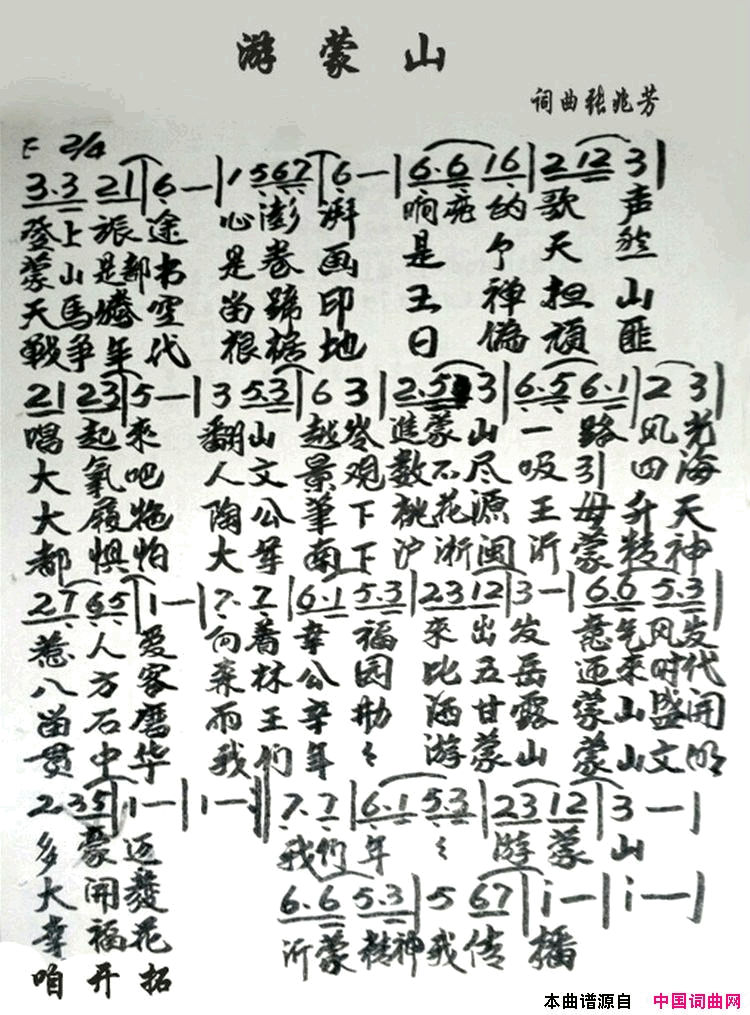 游蒙山
词曲张兆芳
F 2/4
3.3 21 | 6 — | 1 567 | 6 — | 6.6 16 | 2 12 3 |
登上旅途 心澎湃 响亮的歌声
蒙山是都书 是卷画 是个天然
天馬腾空 留蹄印 王禅担山
戰争年代 根据地 日偽頑匪
21 23 | 5 — | 3 5.3 | 6 3 | 2.5 3 | 6.5 6.1 | 2 3 |
唱起来 翻山越岺進蒙山 一路风光
大氧吧 人文景观数不尽 吸引四海
大履袍 陶公筆下桃花源 王母升天
都惧怕 大軍南下沪浙闽 沂蒙精神
27 65 | 1 — | 7. 7 | 6.1 5.3 | 23 12 | 3 — | 6.6 5.3 |
惹人爱 向着幸福来出发 意气风发
八方客 森林公园比五岳 迎来时代
留石磨 雨王辛勤洒甘露 蒙山盛开
贯中华 我们年年游蒙山 蒙山文明
2 35 | 1 — | 1 — :‖ 7. 7 | 6.1 5.3 | 23 12 | 3 — |
多豪迈 我们年年游蒙山
大開發
幸福花
6.6 5.3 | 5 67 | i — | i — |
沂蒙精神我传播
咱开拓
本曲谱源自 中国词曲网